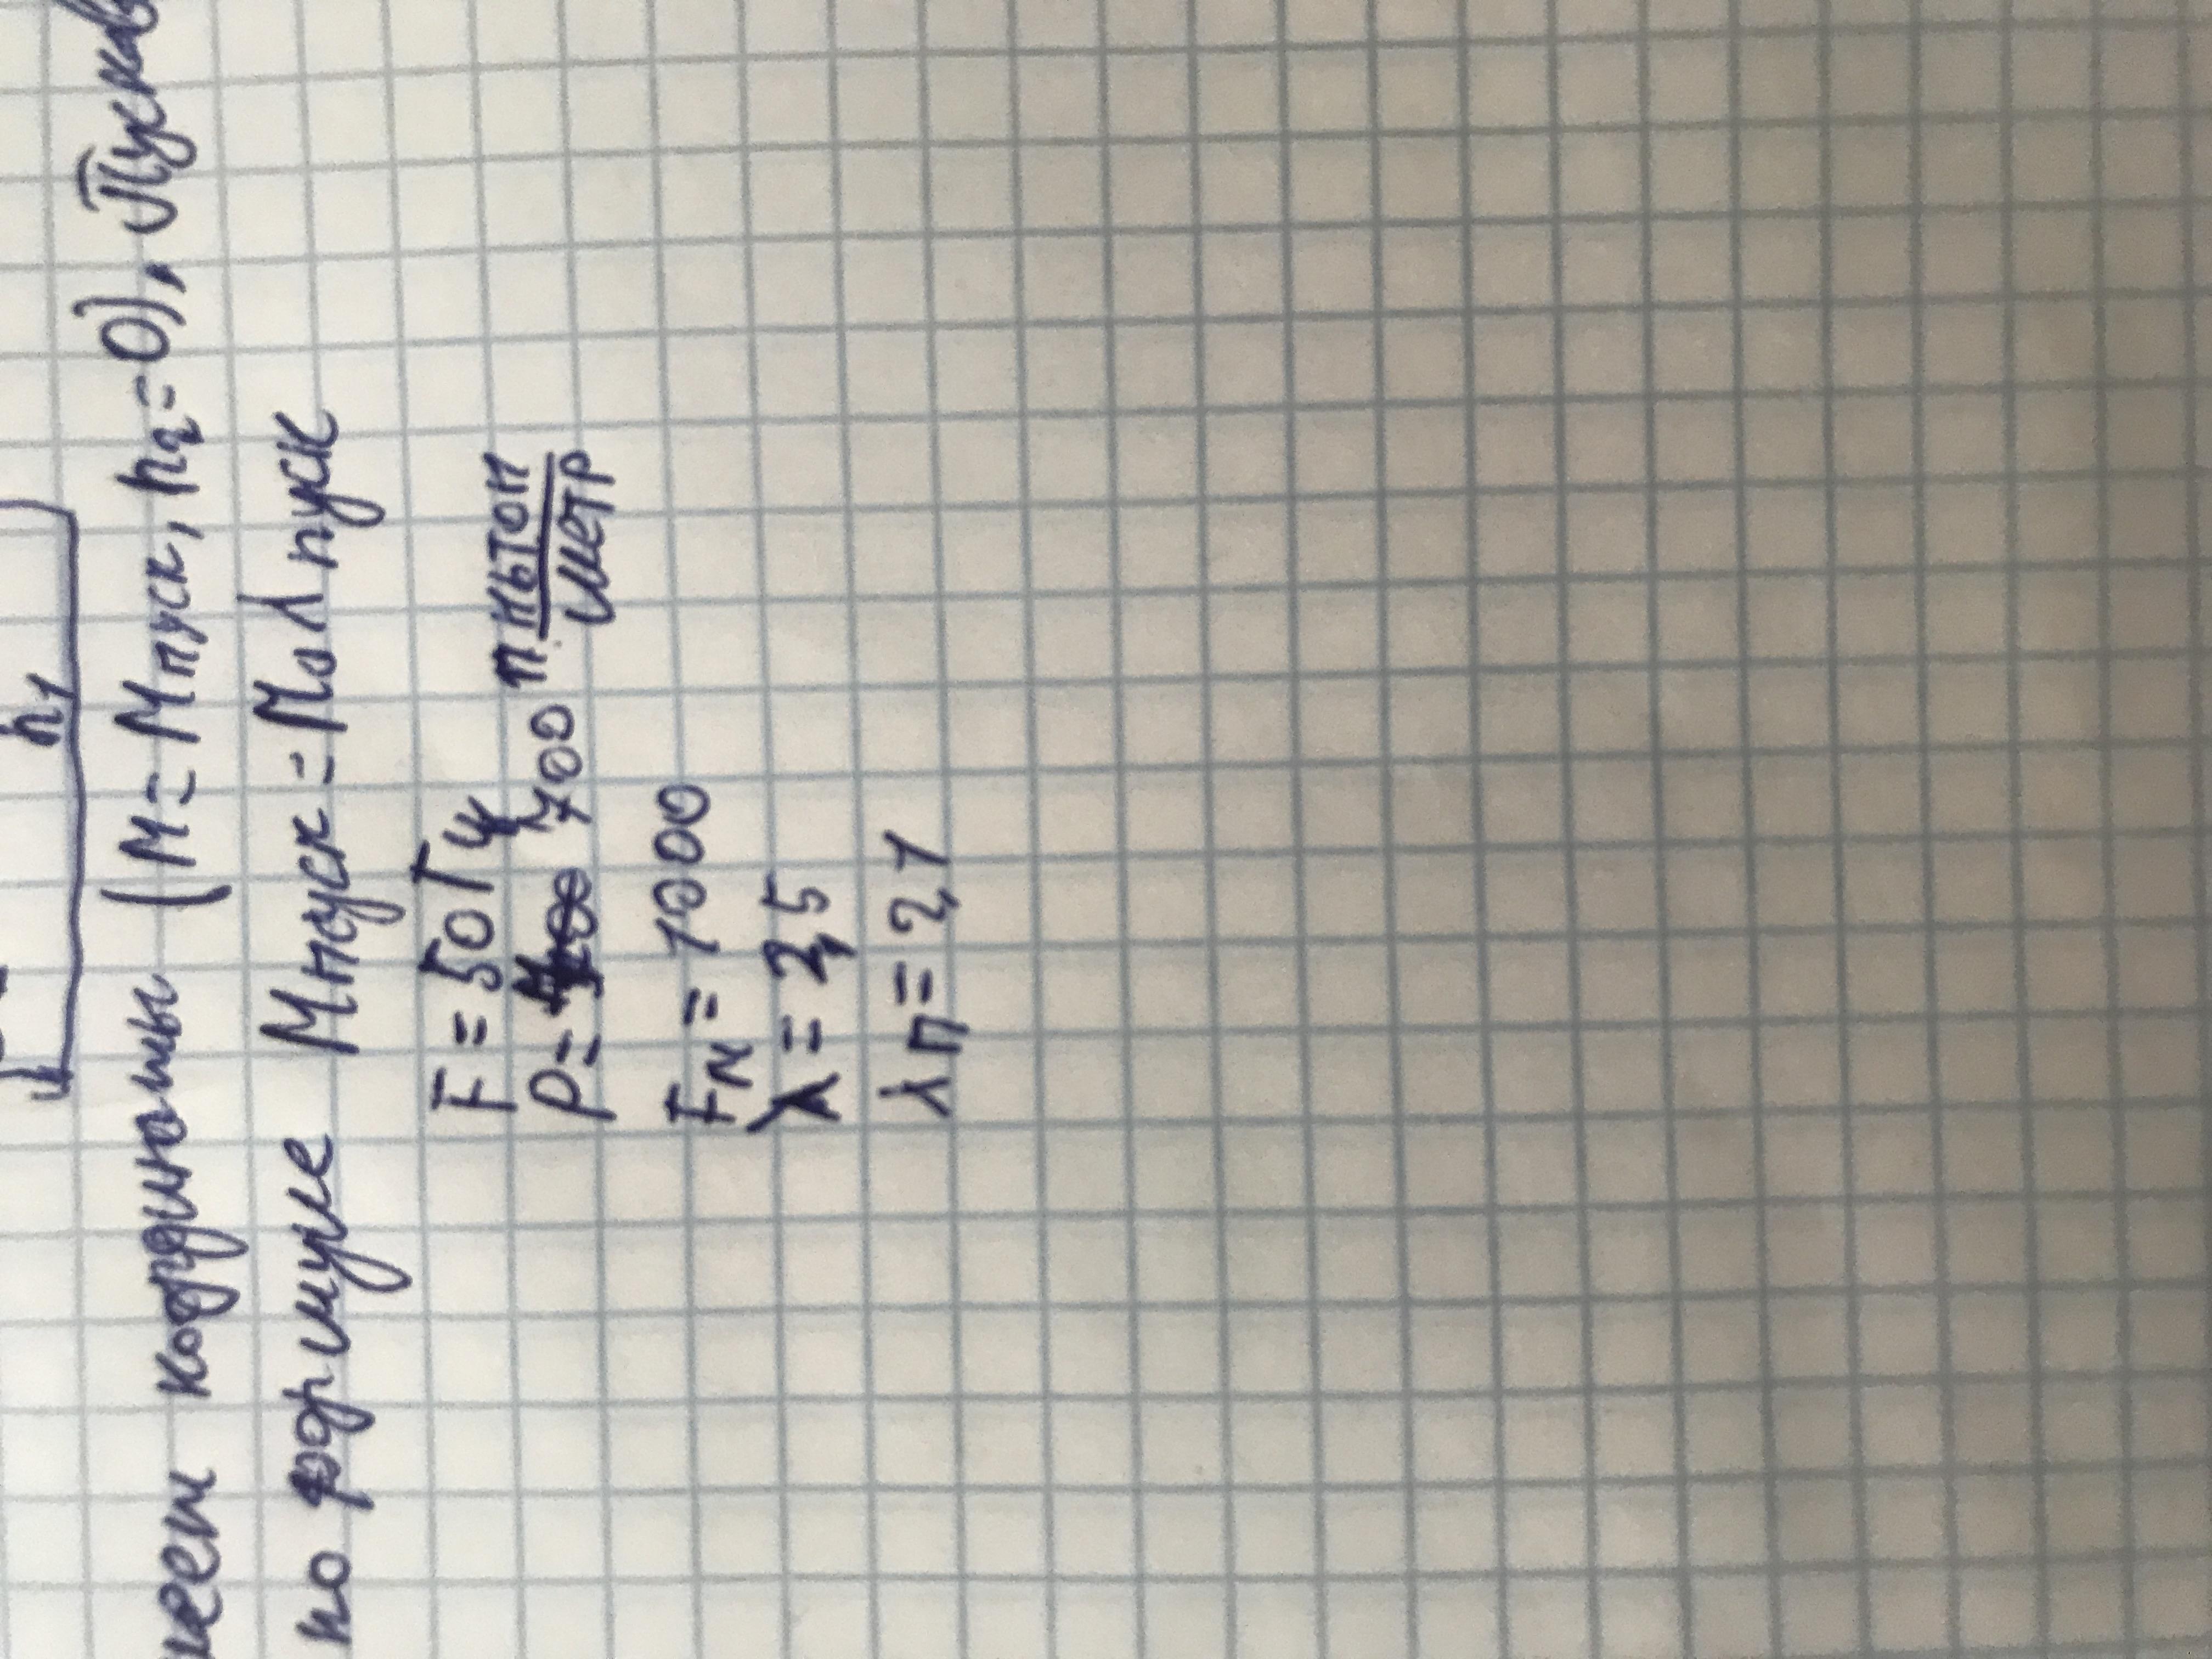 h1
меет кординаты (M = Mпуск, h2 = 0), Пусков
по формуле Mпуск = Mо λ пуск
F = 50 Гц
P = 700 п ньтон
метр
FN = 1000
λ = 2,5
λп = 2,1